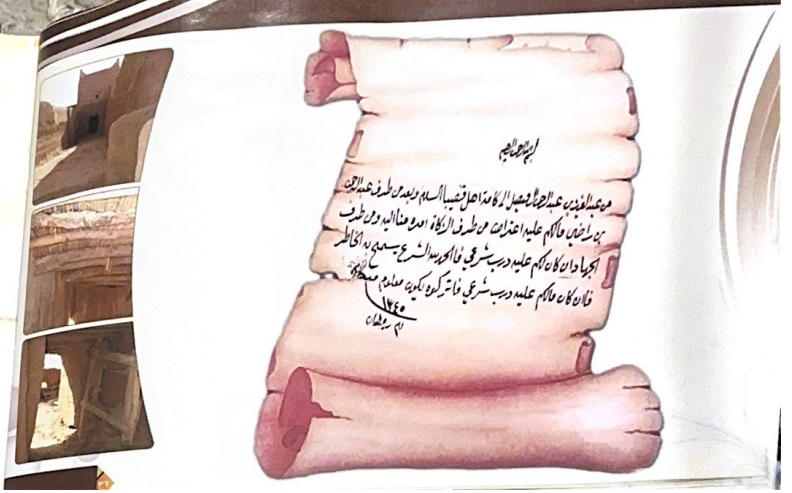 بسم الله الرحمن الرحيم
من عبدالعزيز بن عبدالرحمن الفيصل الى كافة اهل قصيبا السلام وبعد من طرف عبدالرحمن
بن راضي مالكم عليه اعتراض من طرف الزكاة امره منا اليه ومن طرف
الجهاد ان كان لكم عليه درب شرعي فالحمد لله الشرع يسمح به الخاطر
فان كان مالكم عليه درب شرعي فاتركوه يكون معلوم
١٣٤٥
٣٢